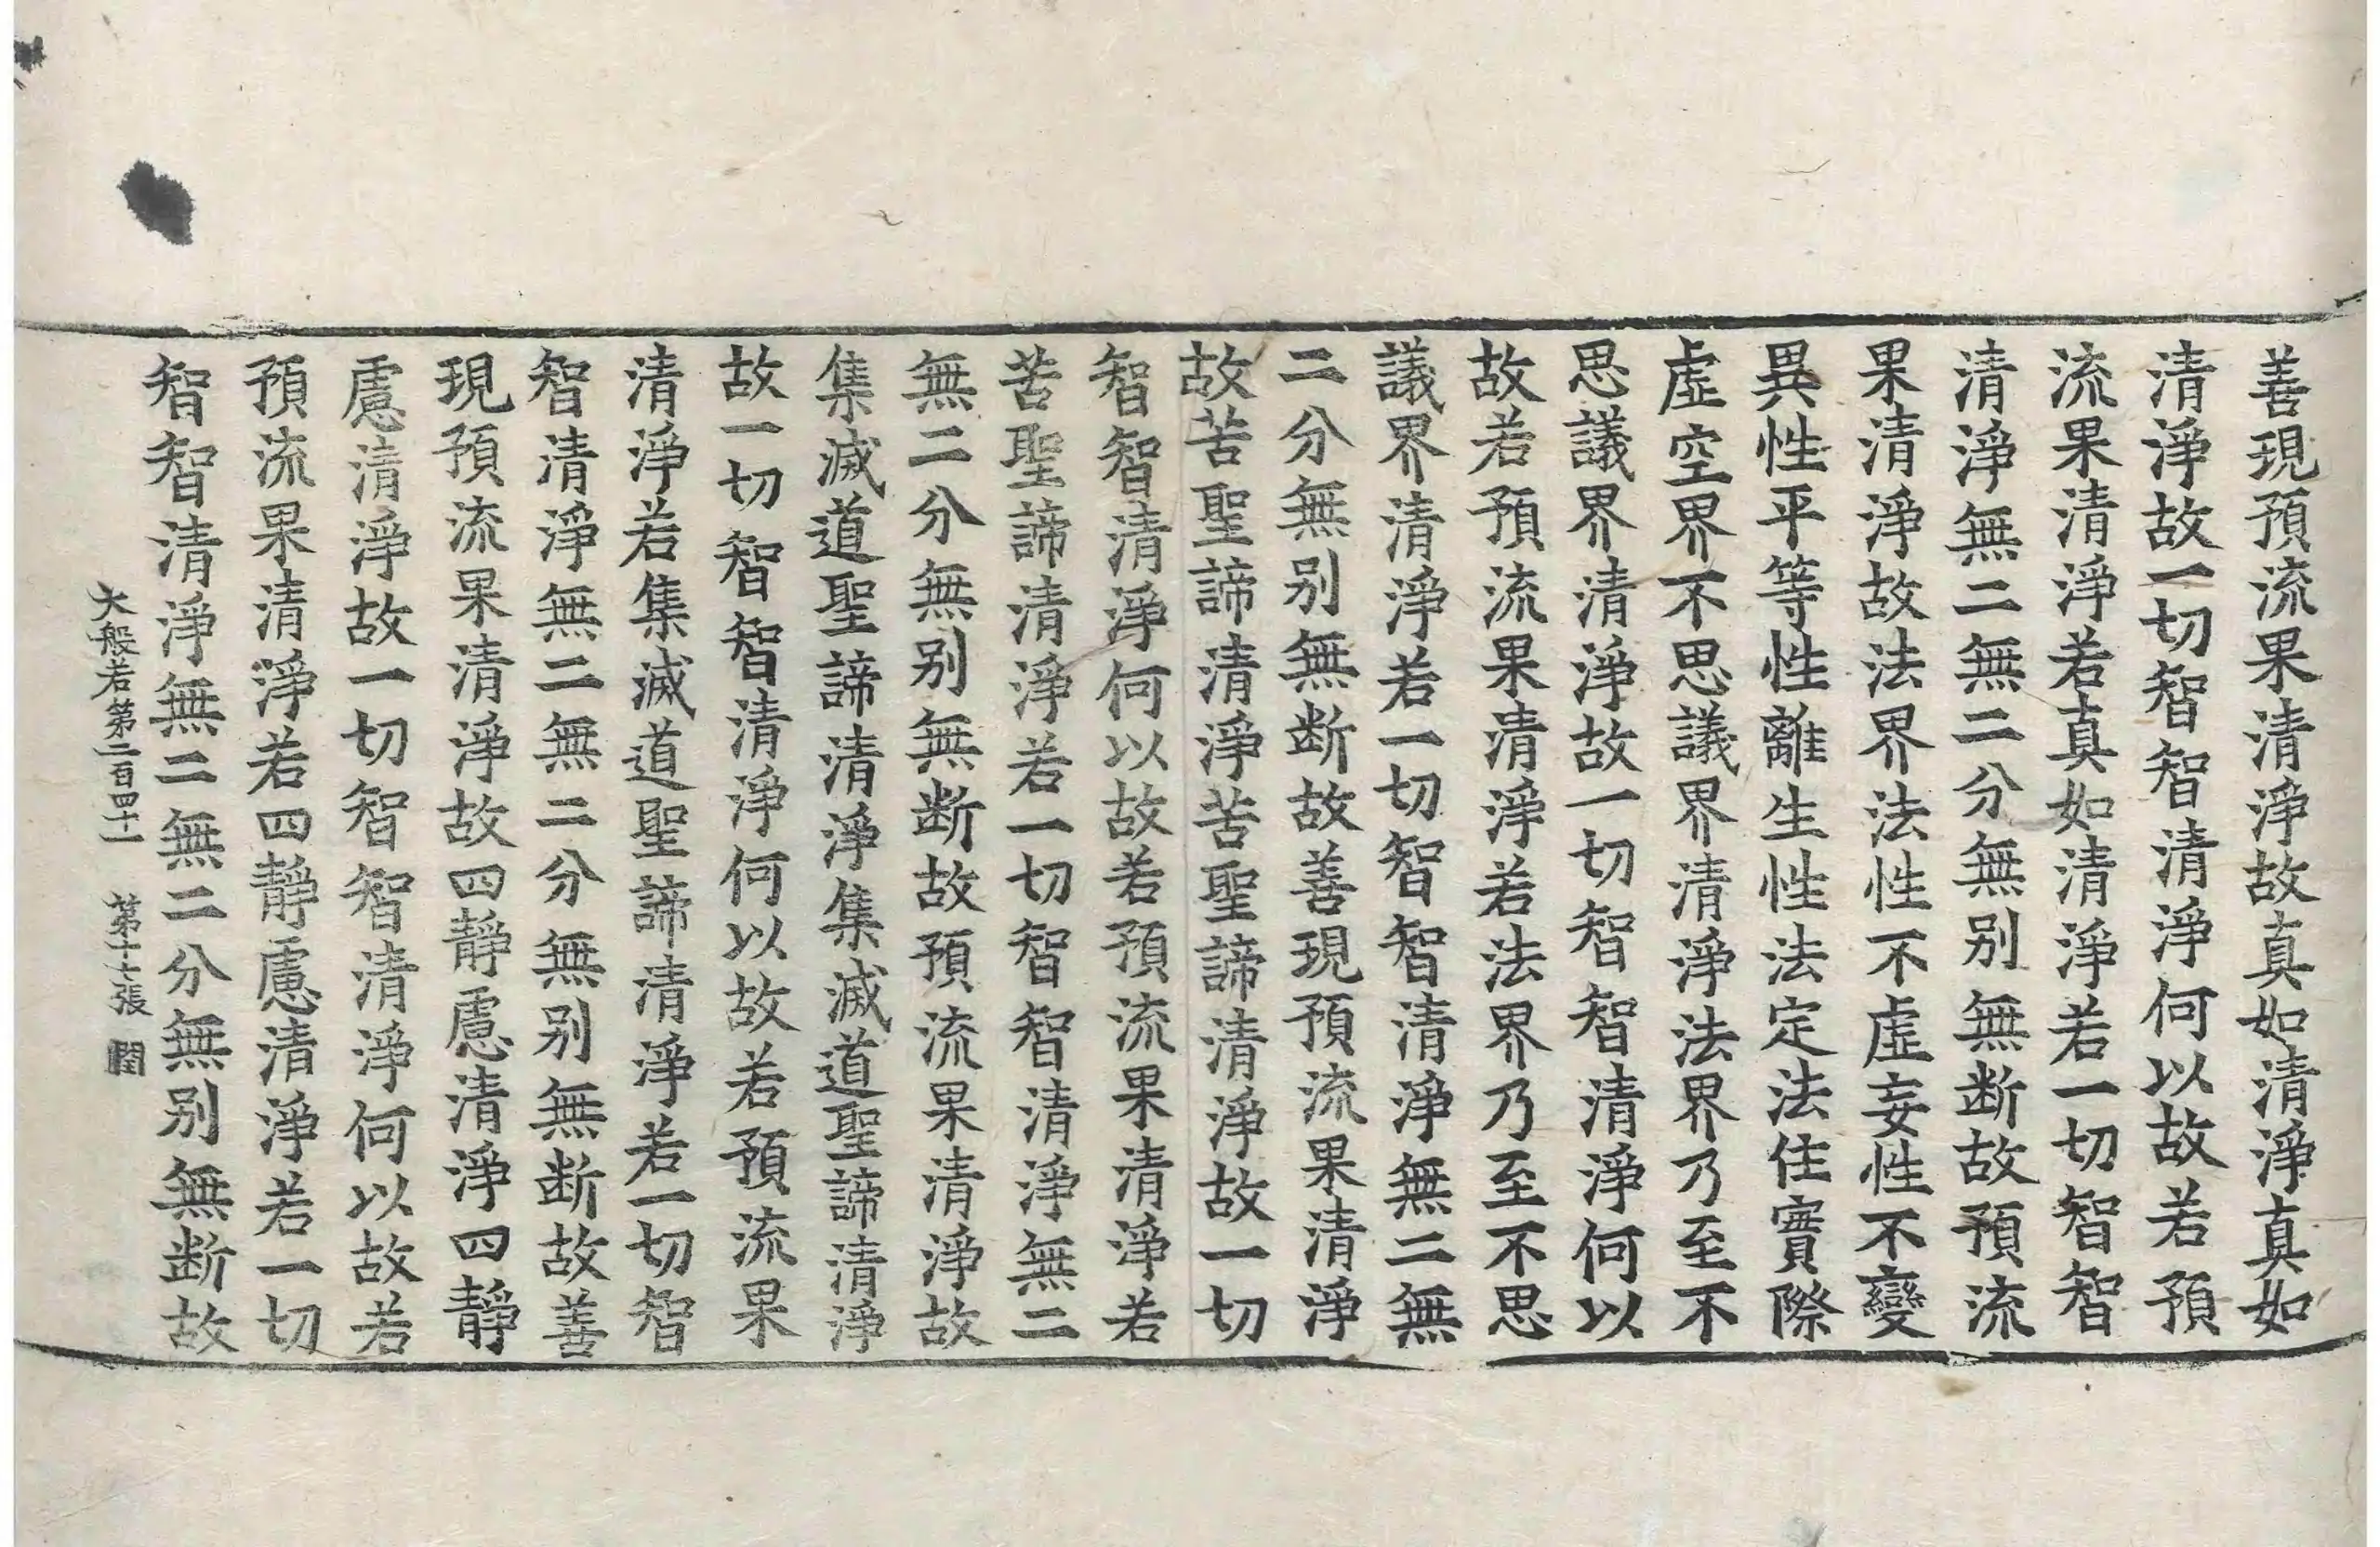 善現預流果清淨故真如清淨真如
清淨故一切智智清淨何以故若預
流果清淨若真如清淨若一切智智
清淨無二無二分無別無斷故預流
果清淨故法界法性不虛妄性不變
異性平等性離生性法定法住實際
虛空界不思議界清淨法界乃至不
思議界清淨故一切智智清淨何以
故若預流果清淨若法界乃至不思
議界清淨若一切智智清淨無二無
二分無別無斷故善現預流果清淨
故苦聖諦清淨苦聖諦清淨故一切
智智清淨何以故若預流果清淨若
苦聖諦清淨若一切智智清淨無二
無二分無別無斷故預流果清淨故
集滅道聖諦清淨集滅道聖諦清淨
故一切智智清淨何以故若預流果
清淨若集滅道聖諦清淨若一切智
智清淨無二無二分無別無斷故善
現預流果清淨故四靜慮清淨四靜
慮清淨故一切智智清淨何以故若
預流果清淨若四靜慮清淨若一切
智智清淨無二無二分無別無斷故
大般若第二百四十一 第十七張